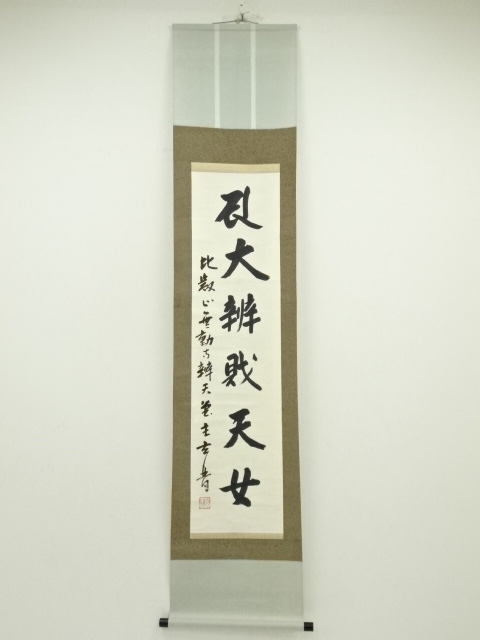 大辨財天女
比叡山無動寺辨天堂主